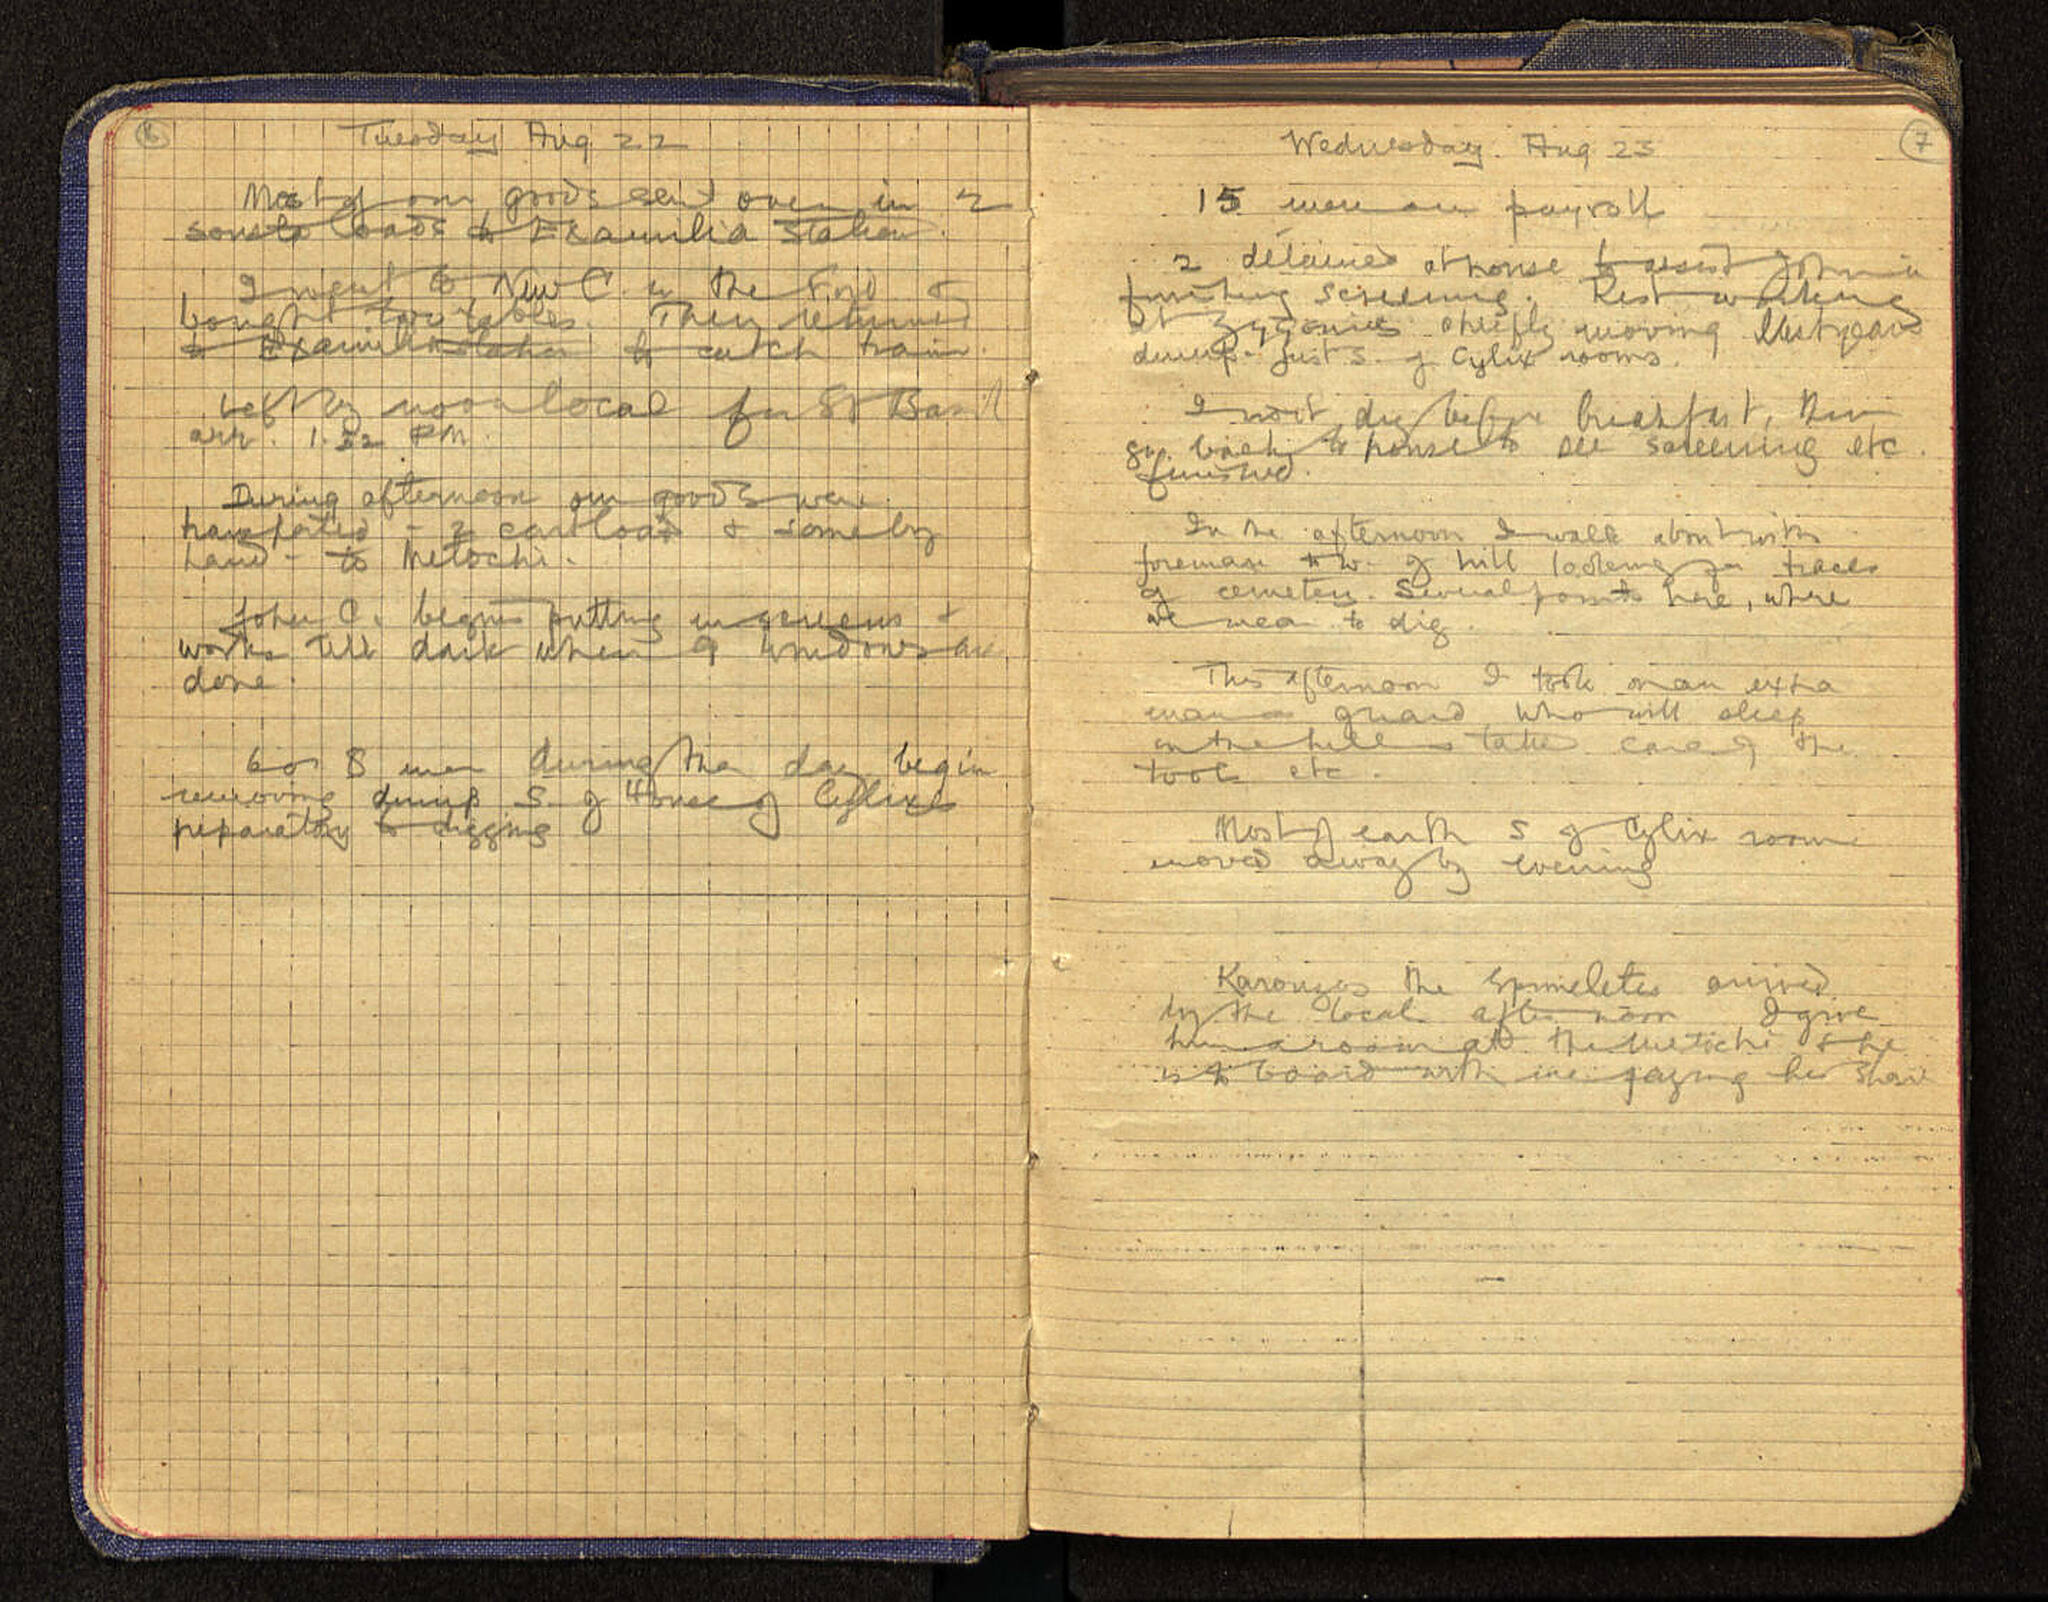 6
Tuesday Aug 22
Most of our goods sent over in 2
sousta loads to Examilia Station.
I went to New C. in the Ford &
bought two tables. Then returned
to Examilia station to catch train.
Left by noon local for St Basil
arr. 1.32 PM.
During afternoon our goods were
transported - 2 cartloads & some by
hand - to Metochi.
John C. begins putting in screens &
works till dark when 9 windows are
done.
6 or 8 men during the day begin
removing dump S. of House of Cylixes
preparatory to digging
7
Wednesday. Aug 23
15 men on payroll
2 detained at house to assist John in
finishing screening. Rest working
at Zygouries chiefly moving last years
dump just S. of Cylix rooms.
I visit dig before breakfast, then
go back to house to see screening etc.
finished.
In the afternoon I walk about with
foreman to W. of hill looking for traces
of cemetery. Several points here, where
we mean to dig.
This afternoon I took on an extra
man as guard, who will sleep
on the hill & take care of the
tools etc.
Most of earth S of Cylix room
moved away by evening
Karouzos the Epimeletes arrived
by the local after noon I give
him a room at the Metochi & he
is to board with me paying his share